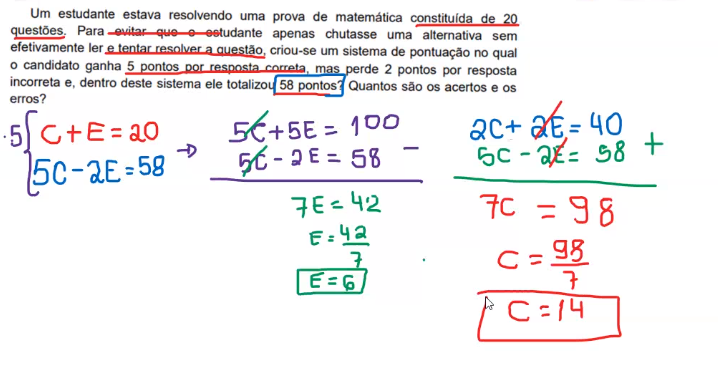 Um estudante estava resolvendo uma prova de matemática constituída de 20
questões. Para evitar que o estudante apenas chutasse uma alternativa sem
efetivamente ler e tentar resolver a questão, criou-se um sistema de pontuação no qual
o candidato ganha 5 pontos por resposta correta, mas perde 2 pontos por resposta
incorreta e, dentro deste sistema ele totalizou 58 pontos? Quantos são os acertos e os
erros?
·5 { C + E = 20
5C - 2E = 58
→
5C + 5E = 100
5C - 2E = 58 -
7E = 42
E = 42/7
E = 6
2C + 2E = 40
5C - 2E = 58 +
7C = 98
C = 98/7
C = 14